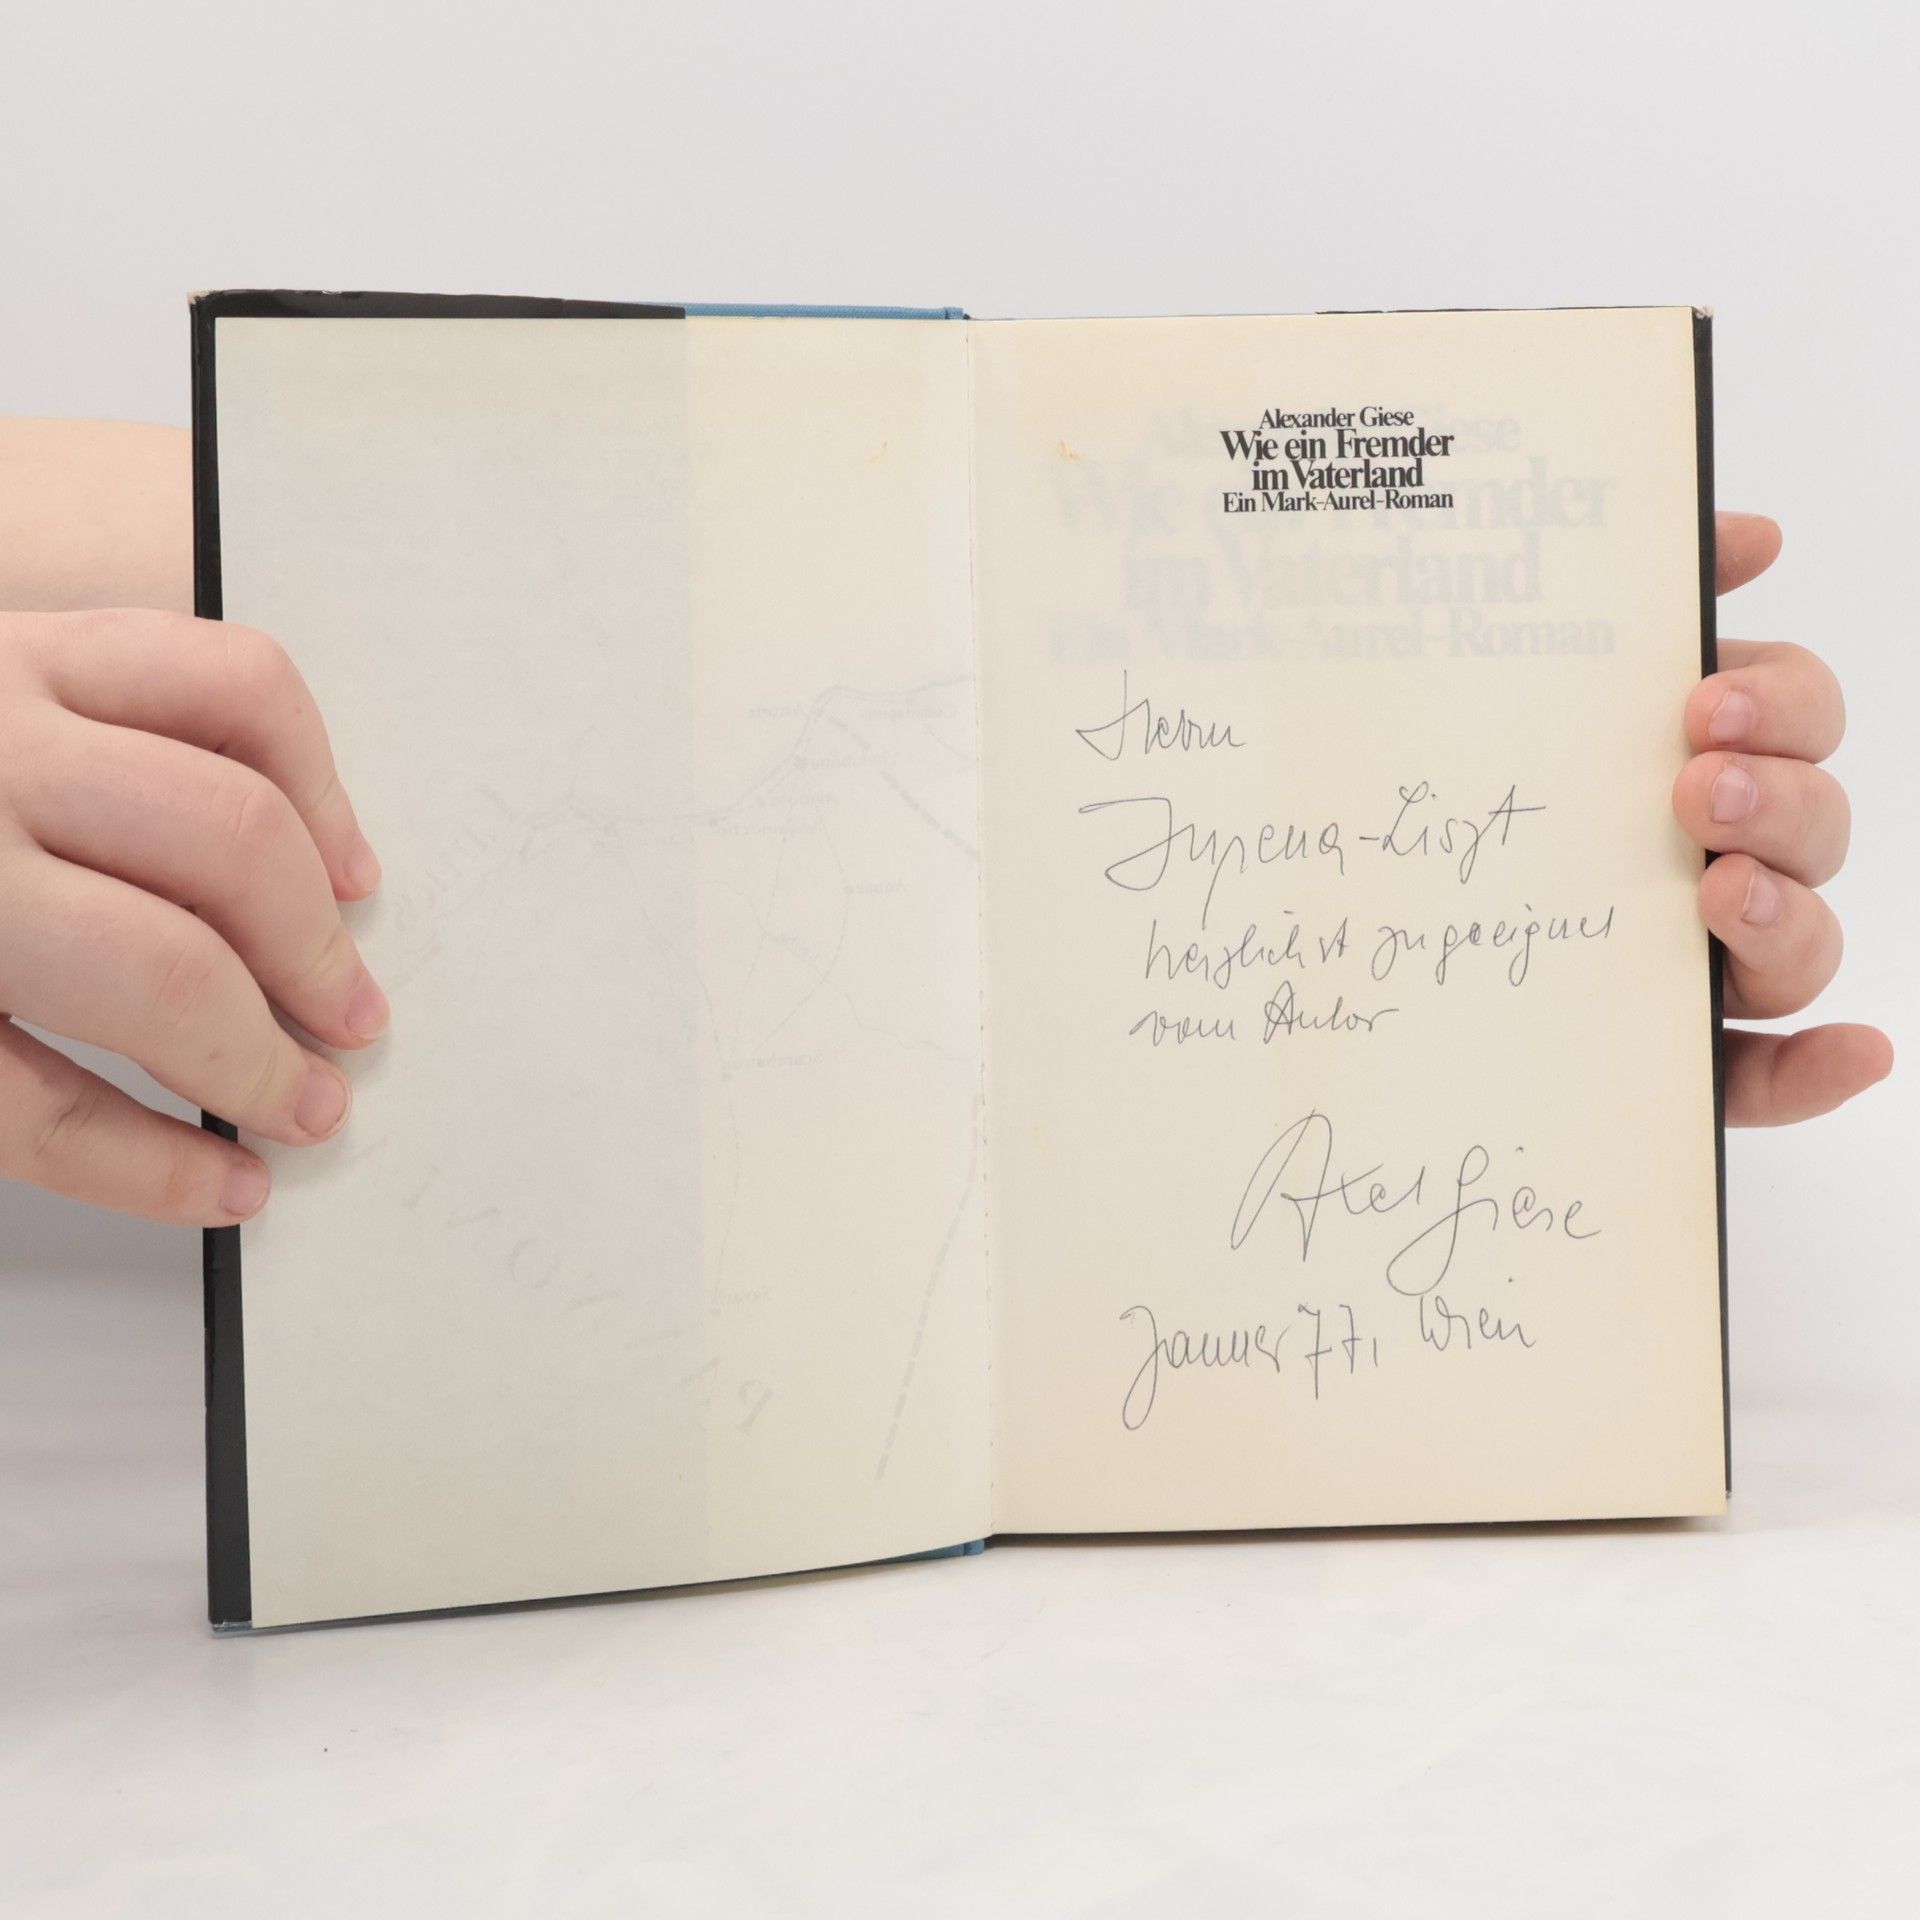 Alexander Giese
Wie ein Fremder
im Vaterland
Ein Mark-Aurel-Roman
Herrn
-Liszt
herzlichst zugeeignet
vom Autor
Axel Giese
Jänner 77, Wien